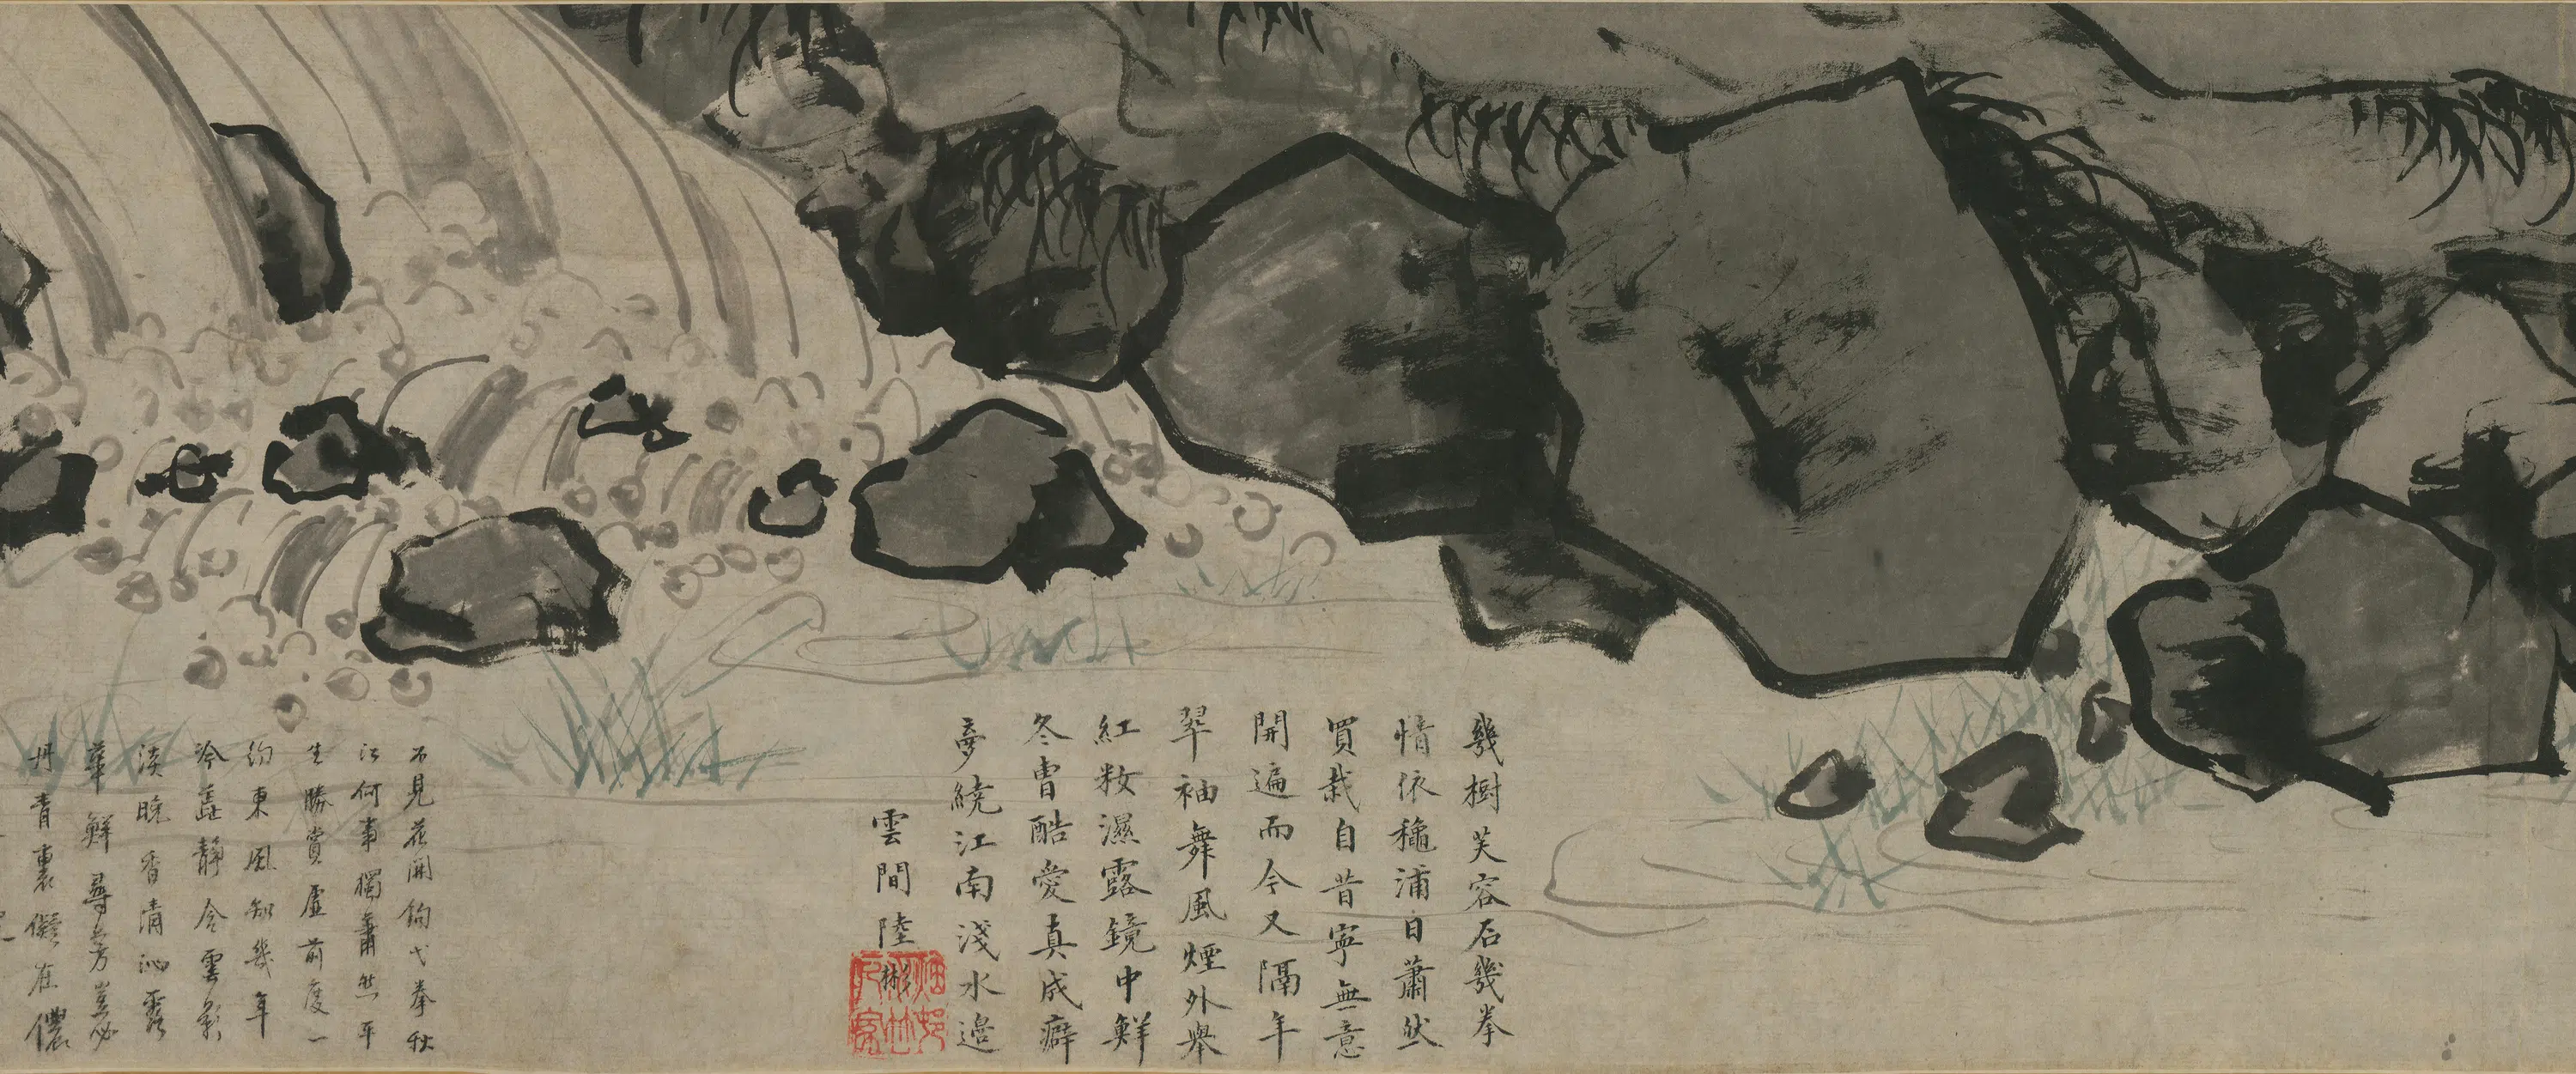 幾樹芙容石幾拳
情依穐浦日蕭然
買栽自昔寧無意
開遍而今又隔年
翠袖舞風煙外舉
紅粧濕露鏡中鮮
冬曹酷愛真成癖
夢繞江南淺水邉
雲間陸彬
不見花開鉤弋拳秋
江何事獨蕭然平
生勝賞虛前度一
約東風知幾年
冷蕋靜含雲影
淡晚香清沁露
華鮮尋芳豈必
丹青裏儗在儂